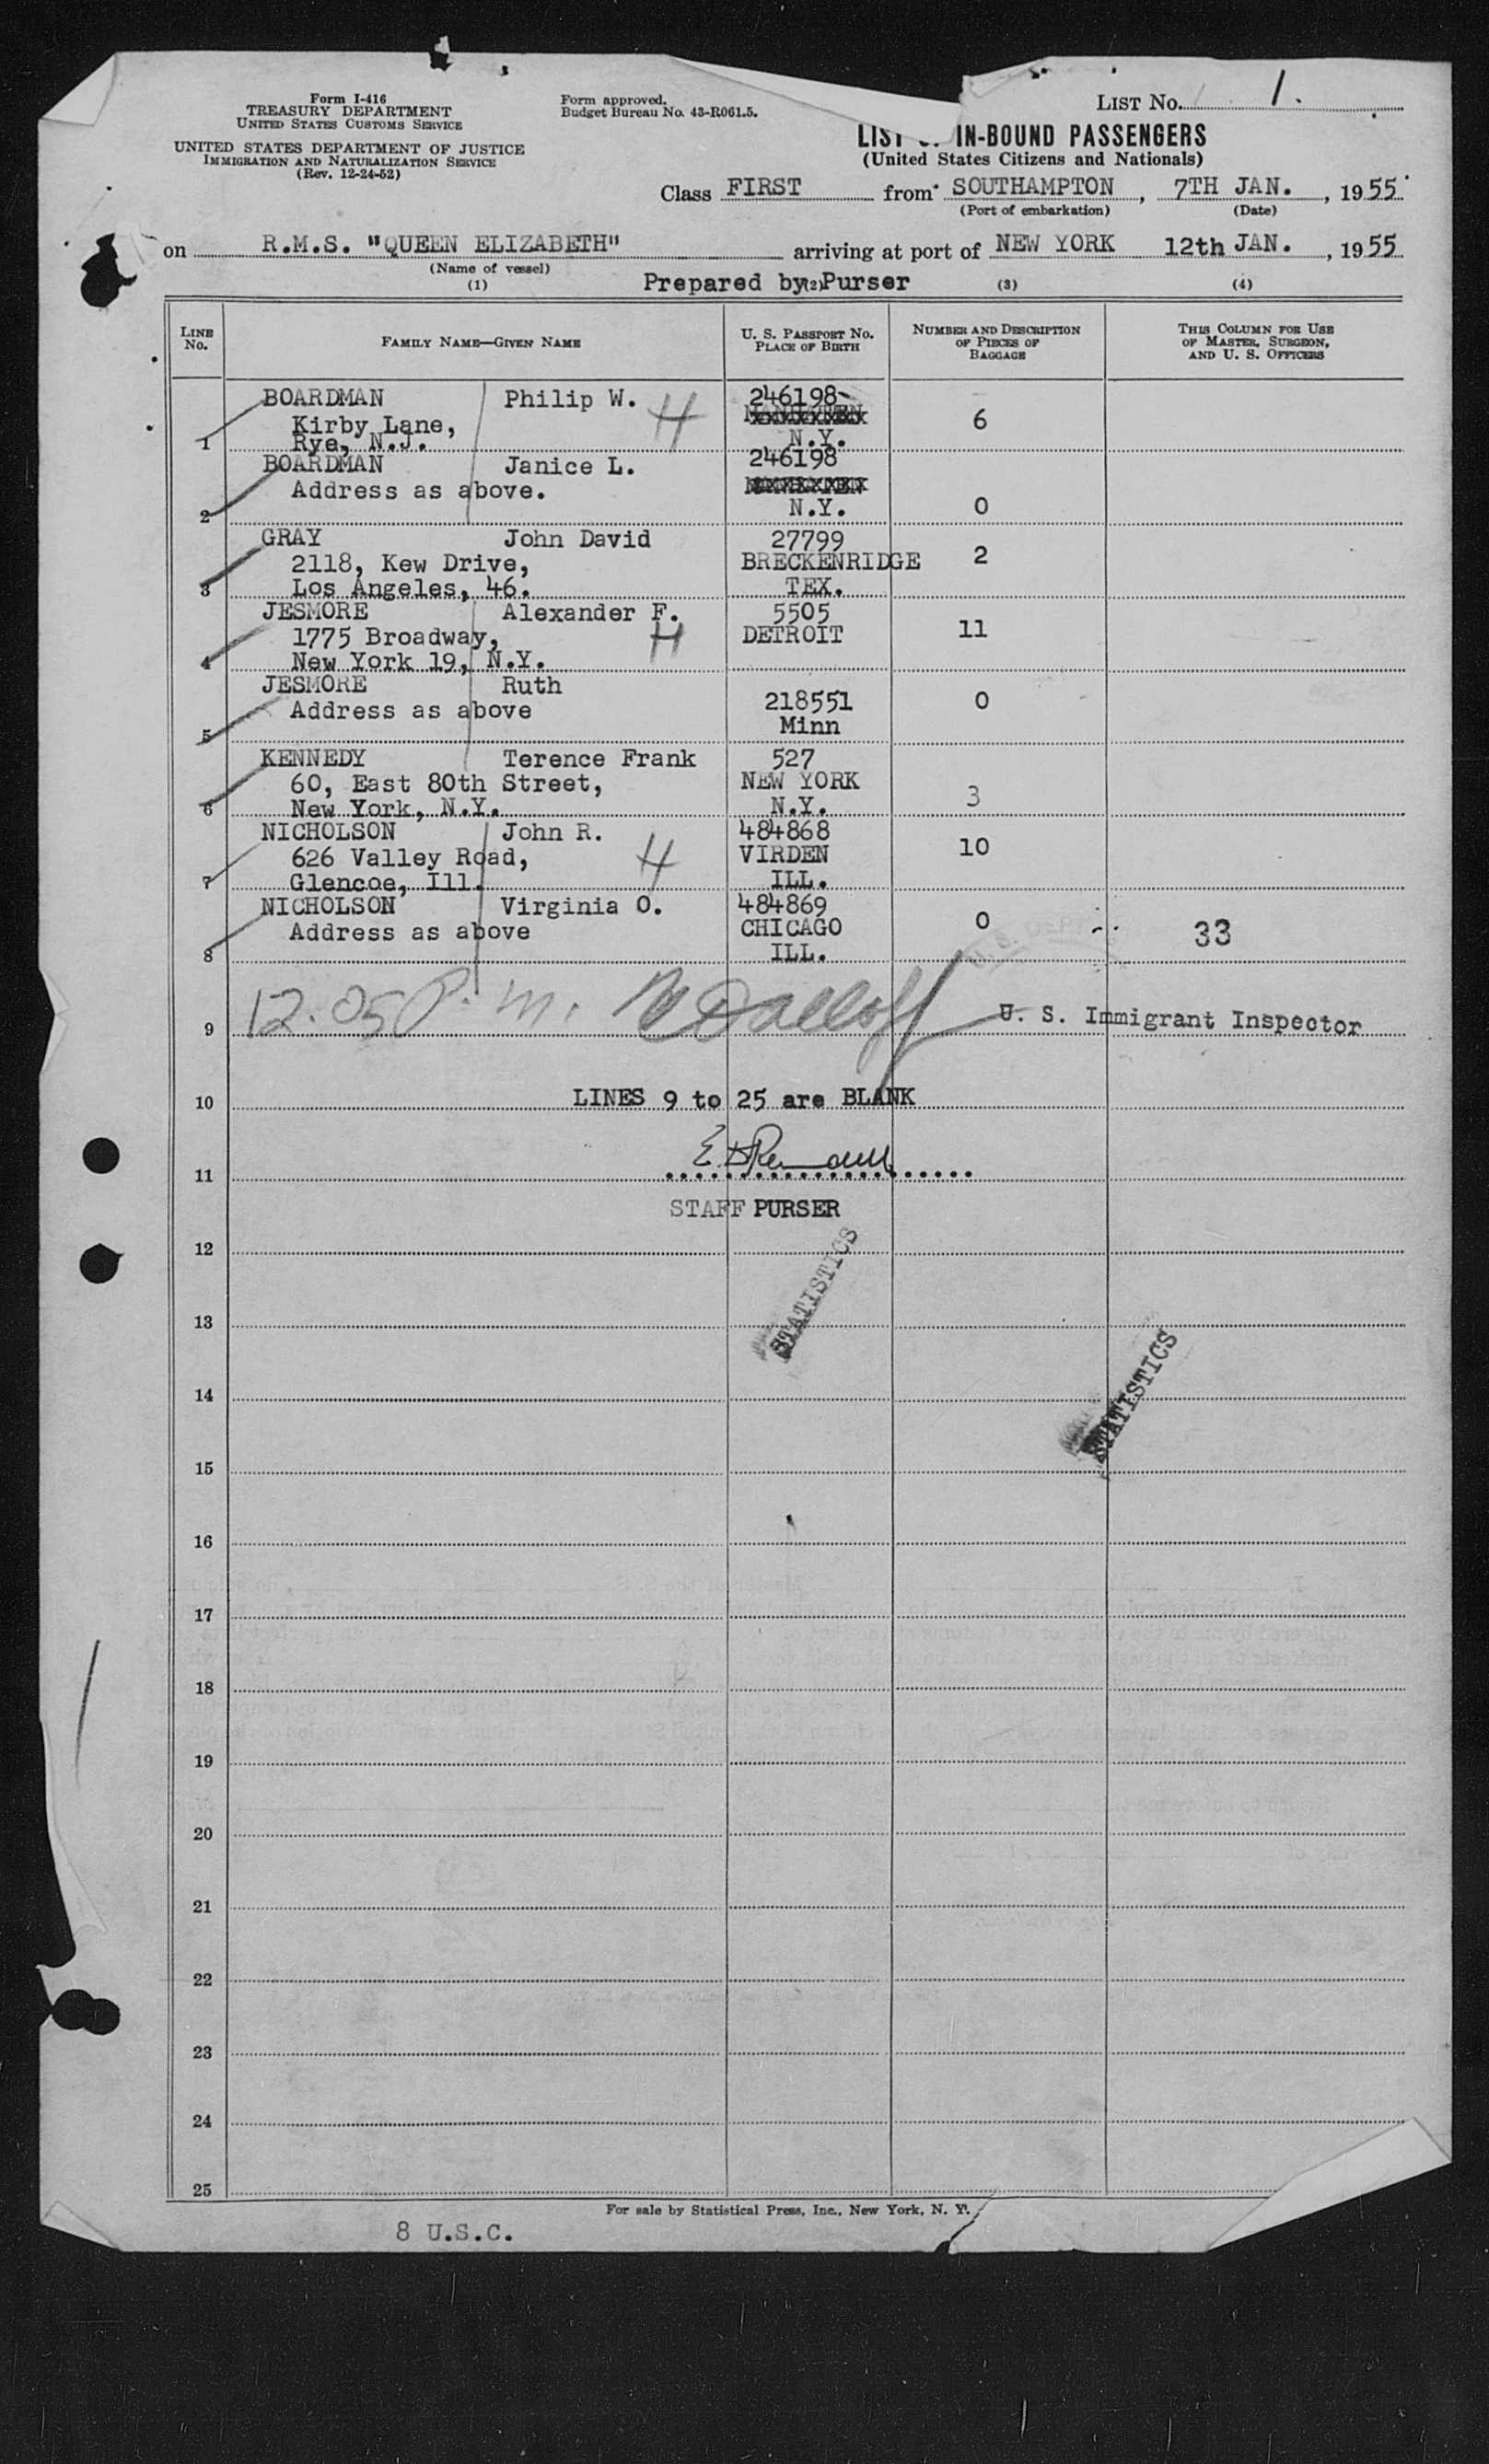 Form I-416
TREASURY DEPARTMENT
UNITED STATES CUSTOMS SERVICE
UNITED STATES DEPARTMENT OF JUSTICE
IMMIGRATION AND NATURALIZATION SERVICE
(Rev. 12-24-52)
Form approved.
Budget Bureau No. 43-R061.5.
LIST No. 1.
LIST IN-BOUND PASSENGERS
(United States Citizens and Nationals)
Class FIRST from SOUTHAMPTON, 7TH JAN., 1955
(Port of embarkation) (Date)
on R.M.S. "QUEEN ELIZABETH" arriving at port of NEW YORK 12th JAN., 1955
(Name of vessel)
(1) Prepared by (2) Purser (3) (4)
LINE No. FAMILY NAME—GIVEN NAME U. S. PASSPORT No. PLACE OF BIRTH NUMBER AND DESCRIPTION OF PIECES OF BAGGAGE THIS COLUMN FOR USE OF MASTER, SURGEON, AND U. S. OFFICERS
BOARDMAN Philip W. H 246198-
Kirby Lane, 6
1 Rye, N.J. N.Y.
BOARDMAN Janice L. 246198
Address as above.
2 N.Y. 0
GRAY John David 27799
2118, Kew Drive, BRECKENRIDGE 2
3 Los Angeles, 46. TEX.
JESMORE Alexander F. 5505
1775 Broadway, H DETROIT 11
4 New York 19, N.Y.
JESMORE Ruth
Address as above 218551 0
5 Minn
KENNEDY Terence Frank 527
60, East 80th Street, NEW YORK
6 New York, N.Y. N.Y. 3
NICHOLSON John R. 484868
626 Valley Road, H VIRDEN 10
7 Glencoe, Ill. ILL.
NICHOLSON Virginia O. 484869
Address as above CHICAGO 0 33
8 ILL.
9 12.05 P.m. U. S. Immigrant Inspector
10 LINES 9 to 25 are BLANK
11
STAFF PURSER
12
STATISTICS
13
STATISTICS
14
15
16
17
18
19
20
21
22
23
24
25
For sale by Statistical Press, Inc., New York, N. Y.
8 U.S.C.